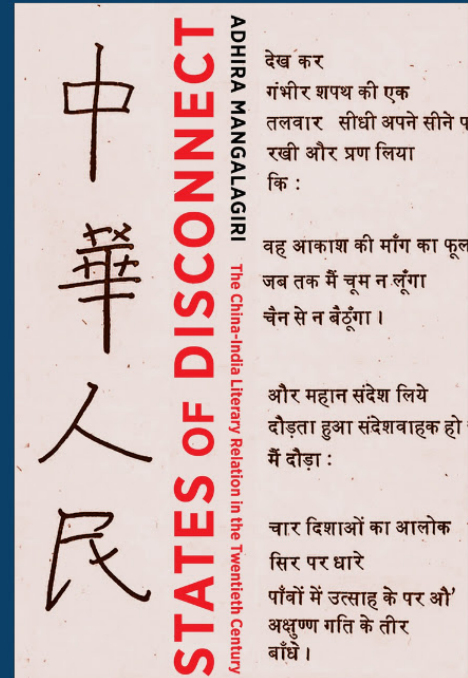 中
華
人
民
STATES OF DISCONNECT
ADHIRA MANGALAGIRI
The China-India Literary Relation in the Twentieth Century
देख कर
गंभीर शपथ की एक
तलवार सीधी अपने सीने
रखी और प्रण लिया
कि :
वह आकाश की माँग का फूल
जब तक मैं चूम न लूँगा
चैन से न बैठूँगा ।
और महान संदेश लिये
दौड़ता हुआ संदेशवाहक हो
मैं दौड़ा :
चार दिशाओं का आलोक
सिर पर धारे
पाँवों में उत्साह के पर औ'
अक्षुण्ण गति के तीर
बाँधे ।